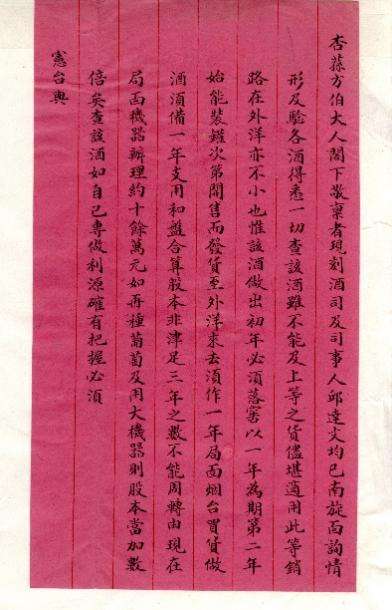 杏蓀方伯大人閣下敬禀者現刻酒司及司事人邱達文均已南旋面詢情
形及驗各酒得悉一切查該酒雖不能及上等之貨儘堪適用此等銷
路在外洋亦不小也惟該酒做出初年必須落窖以一年為期第二年
始能裝罐次第開售而發貨至外洋來去須作一年局面烟台買貨做
酒須備一年支用和盤合算股本非津足三年之數不能周轉由現在
局面機器辦理約十餘萬元如再種葡萄及用大機器則股本當加數
倍矣查該酒如自己專做利源確有把握必須
憲台與